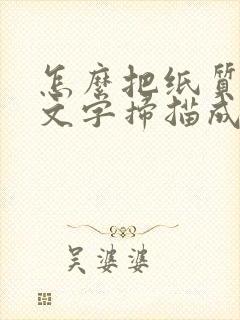 怎麼把纸質
文字掃描成
吴婆婆